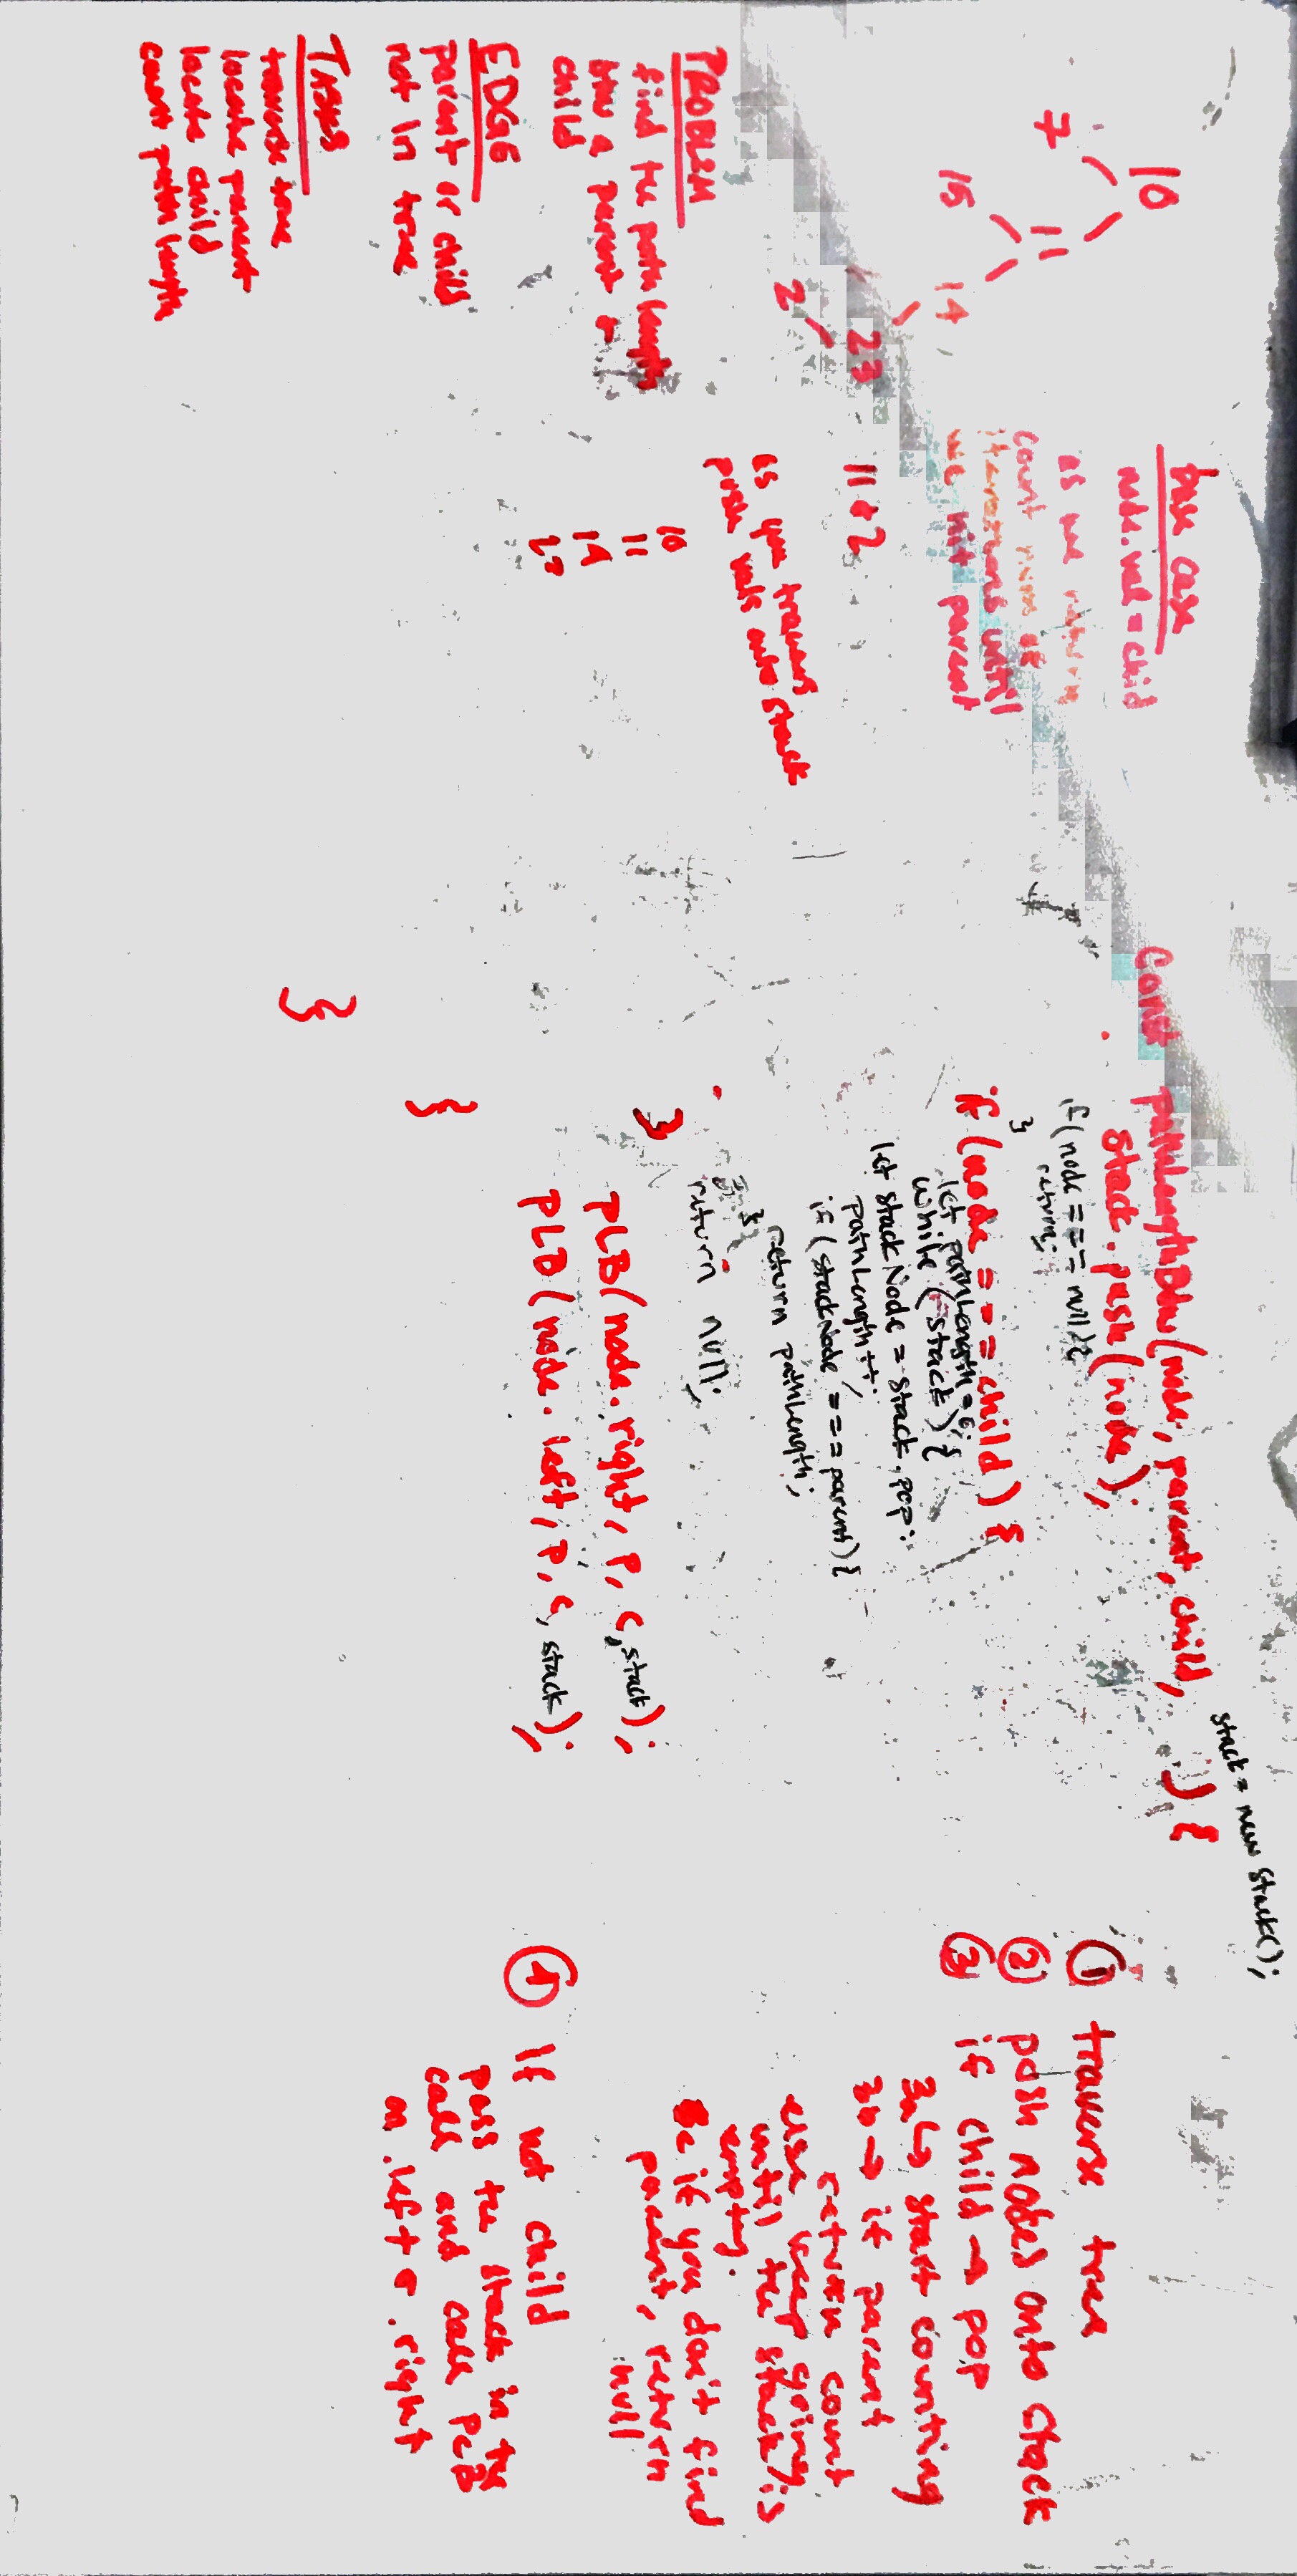 10
7
11
15
14
23
2
PROBLEM
find the path length
btw a parent &
child
EDGE
parent or child
not in tree
TASKS
traverse tree
locate parent
locate child
count path length
base case
node.val = child
as we return
count num of
iterations until
we hit parent
11 & 2
as you traverse
push vals onto stack
10
11
14
23
const pathLengthBtw(node, parent, child, stack = new Stack(); ) {
stack.push(node);
if (node === null) {
return;
}
if (node === child) {
let pathLength = 0;
while (stack) {
let stackNode = stack.pop;
pathLength++;
if (stackNode === parent) {
return pathLength;
}
}
return null;
}
PLB(node.right, P, C, stack);
PLB(node.left, P, C, stack);
}
}
① traverse tree
② push nodes onto stack
③ if child → pop
3a ↳ start counting
3b → if parent
return count
else keep going
until the stack is
empty.
3c if you don't find
parent, return
null
④ If not child
pass the stack in the
call and call PLB
on .left & .right